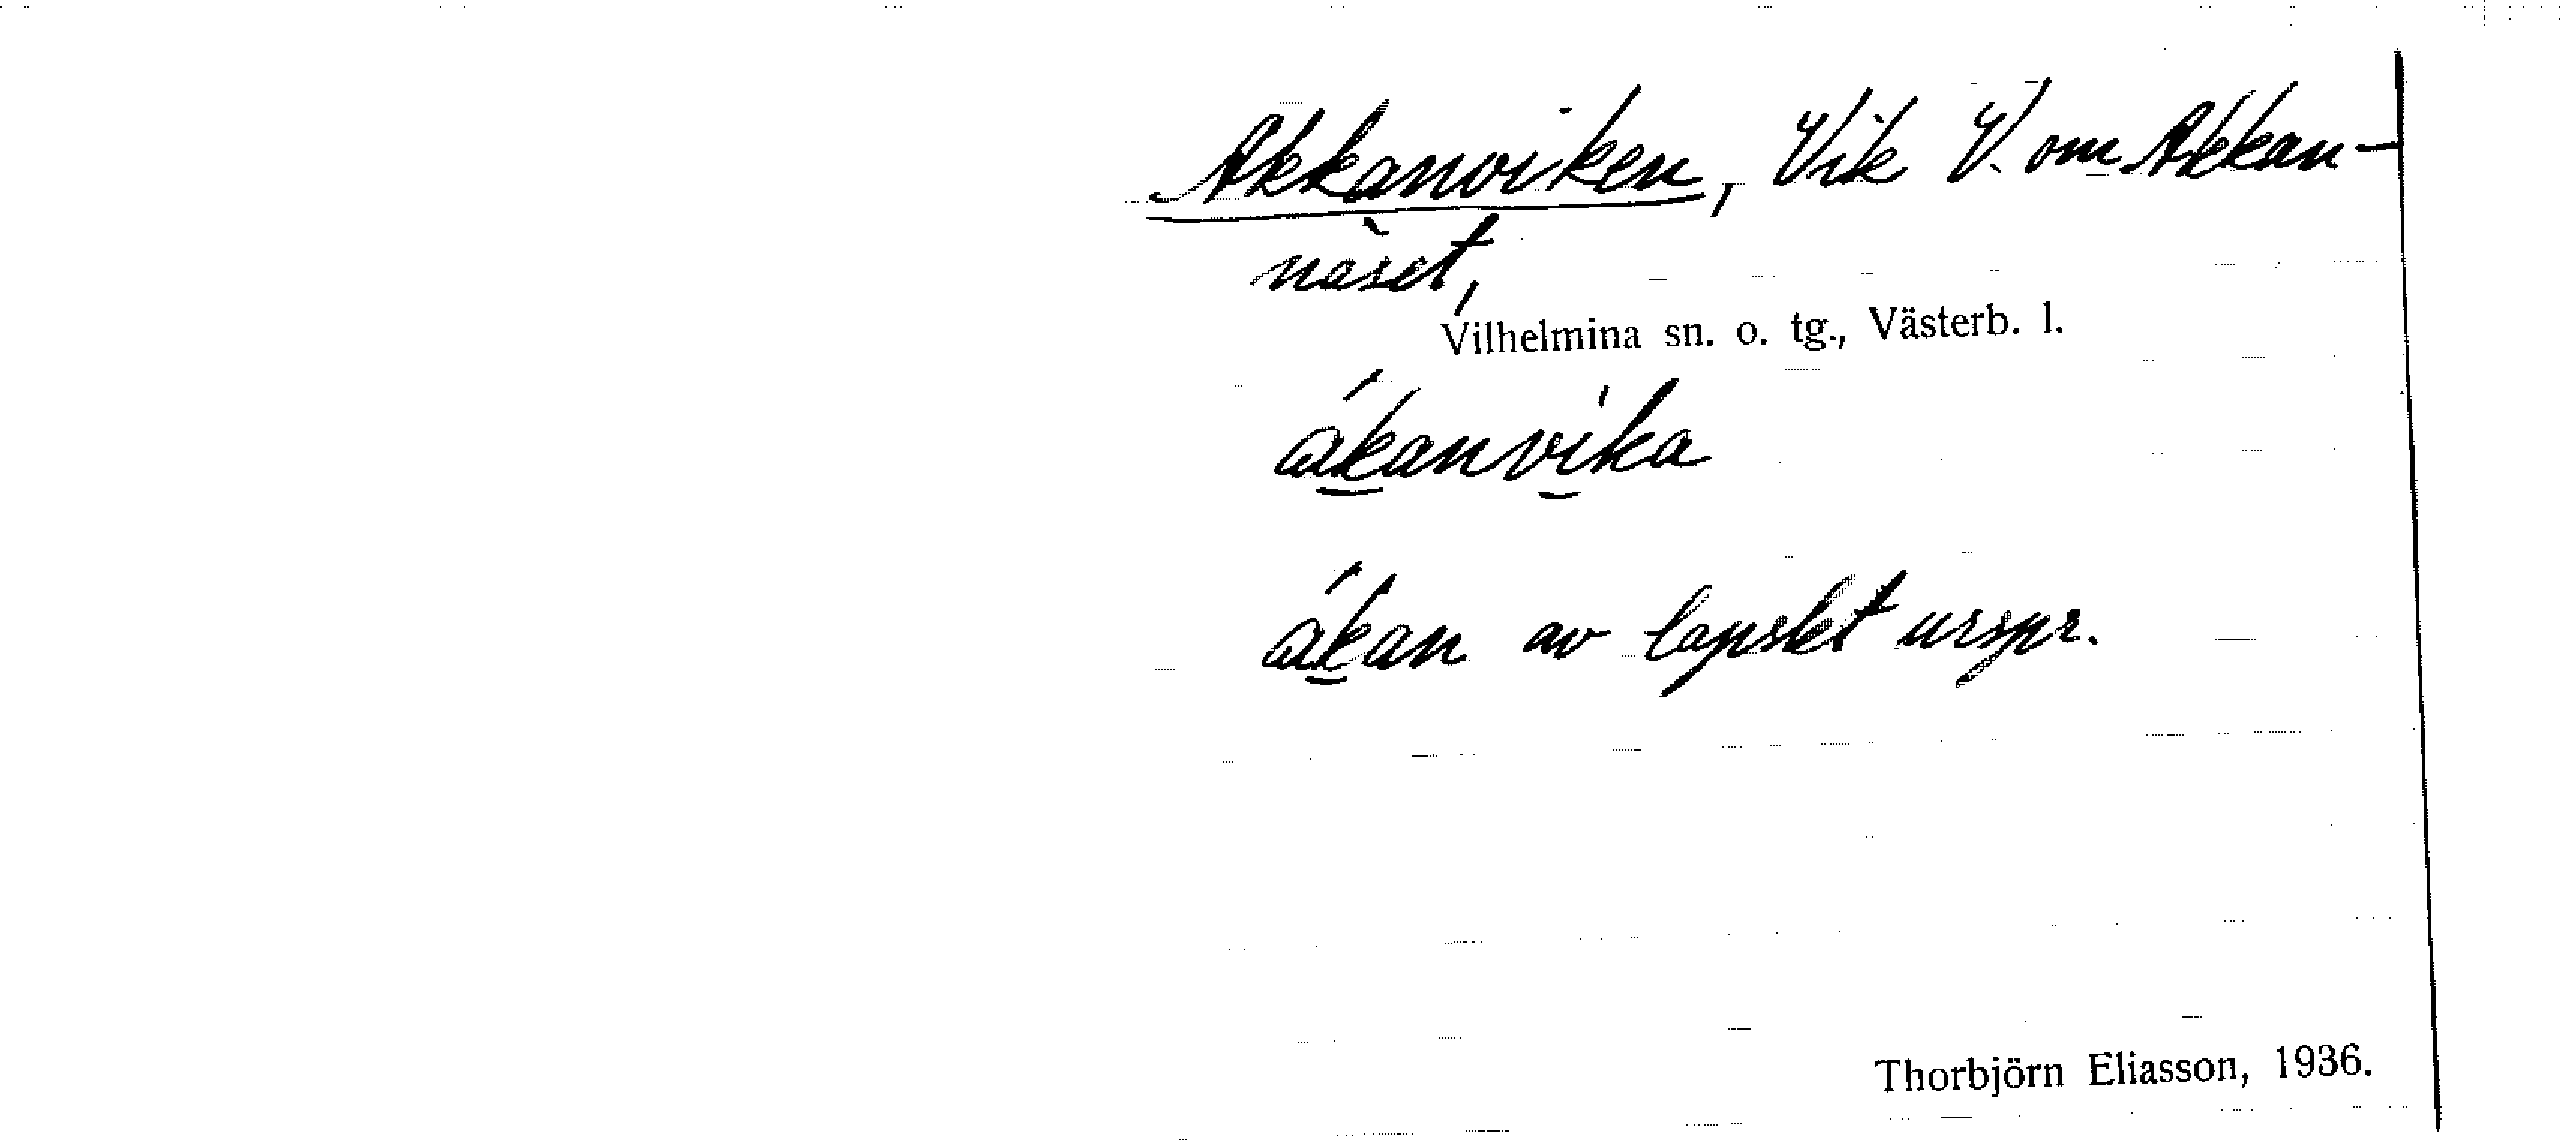 Akkanviken, Vik V. om Akkan-
näset,
Vilhelmina sn. o. tg., Västerb. l.
ákanvíka
ákan av lapskt urspr.
Thorbjörn Eliasson, 1936.